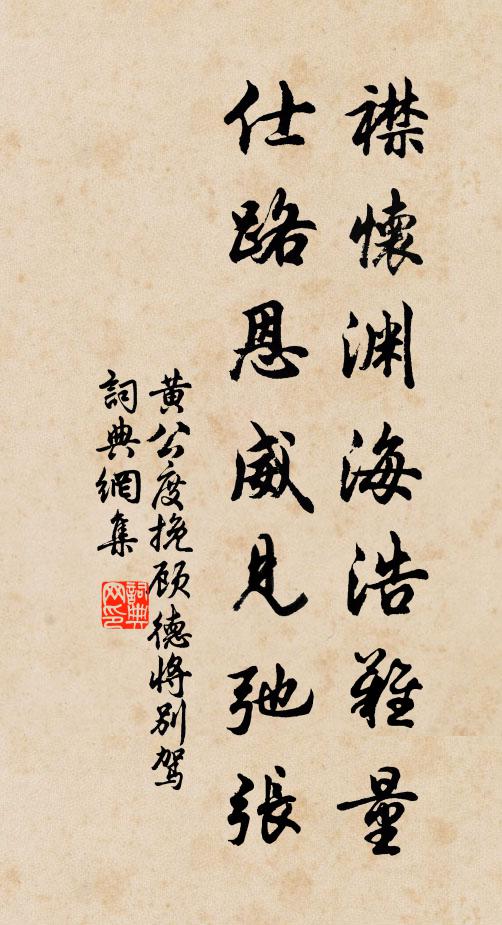 襟懷渊海浩難量
仕路恩威見弛張
黄公度挽顾德将别駕
詞典網集
詞典
网印